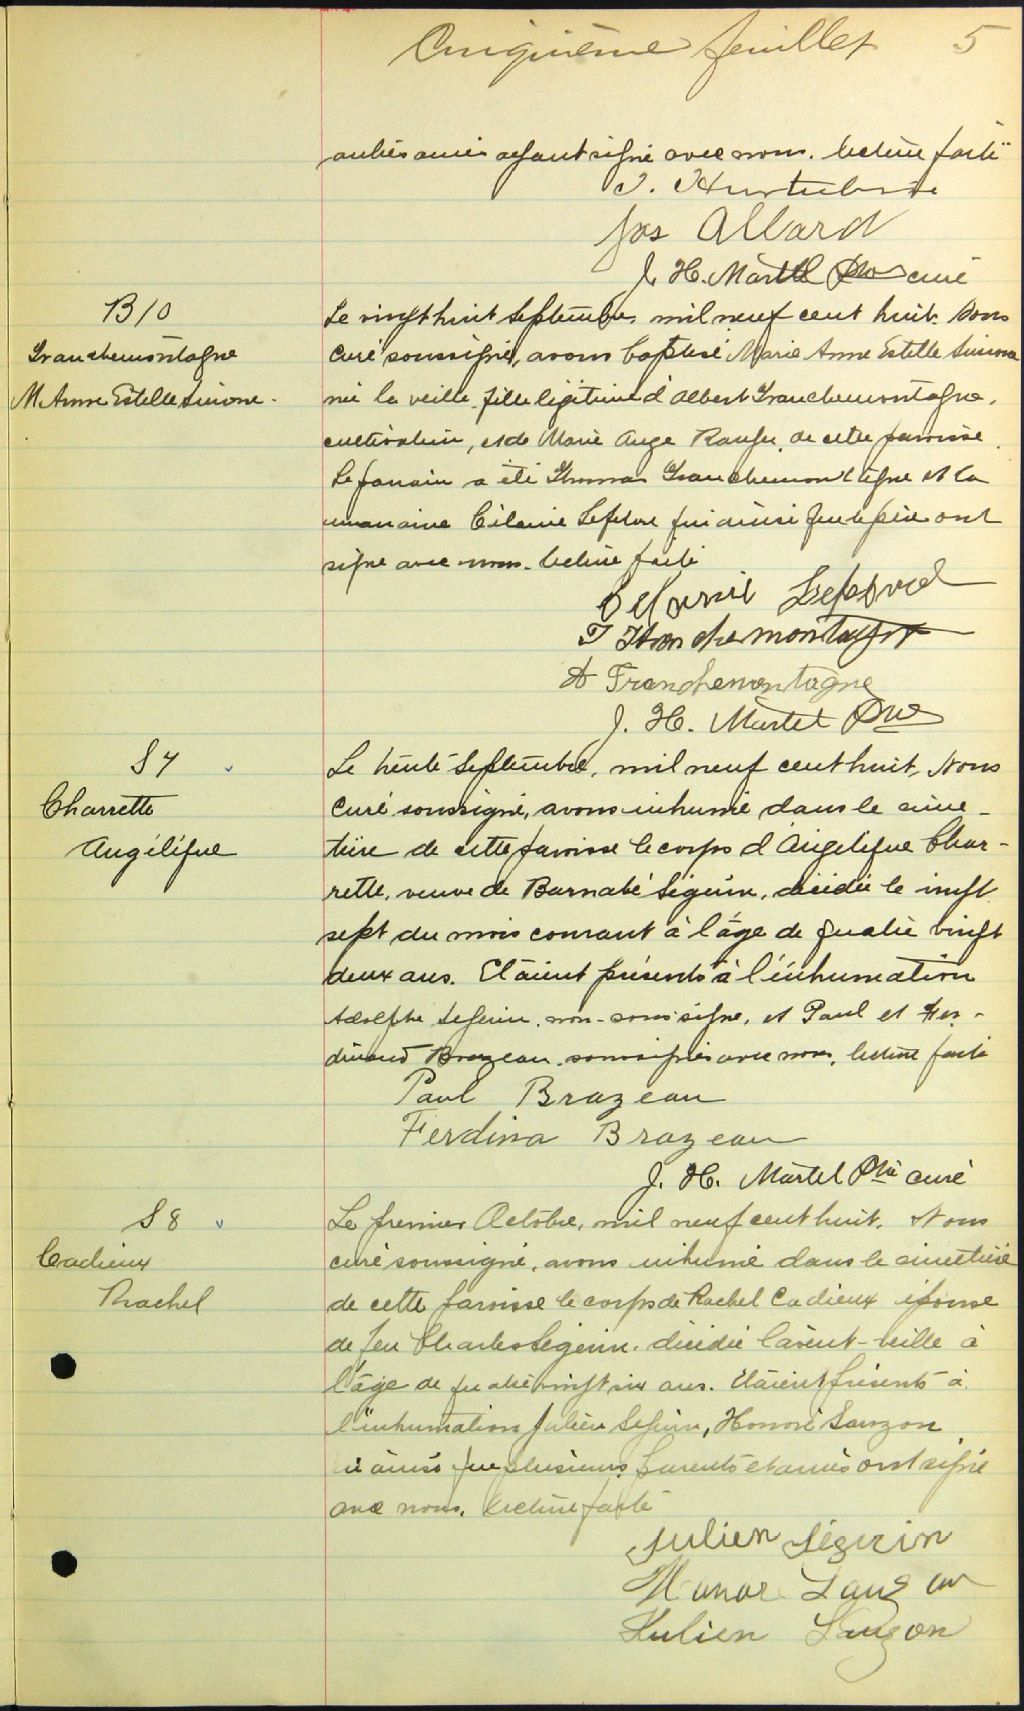 Cinquième feuillet 5
autres amis ayant signé avec nous. Lecture faite
J. Hurtubise
Jos Allard
J. H. Martel Ptre curé
B10
Franchemontagne
M. Anne Estelle Simone.
Le vingt huit Septembre, mil neuf cent huit. Nous
curé soussigné, avons baptisé Marie Anne Estelle Simone
née la veille, fille légitime d'Albert Franchemontagne,
cultivateur, et de Marie Ange Ranger, de cette paroisse.
Le parrain a été Thomas Franchemontagne et la
marraine Célanie Lefebvre qui ainsi que le père ont
signé avec nous. Lecture faite
Lefebvre
T Franchemontagne
A Franchemontagne
J. H. Martel Ptre
S 7
Charrette
Angélique
Le trente Septembre, mil neuf cent huit, Nous
curé soussigné, avons inhumé dans le cime-
tière de cette paroisse le corps d'Angélique Char-
rette, veuve de Barnabé Séguin, décédée le vingt
sept du mois courant à l'âge de quatre vingt
deux ans. Etaient présents à l'inhumation
Adolphe Seguin, non-soussigné, et Paul et Fer-
dinand Brazeau, soussignés avec nous, lecture faite
Paul Brazeau
Ferdina Brazeau
J. H. Martel Ptre curé
S 8
Cadieux
Rachel
Le premier Octobre, mil neuf cent huit, Nous
curé soussigné, avons inhumé dans le cimetière
de cette paroisse le corps de Rachel Cadieux épouse
de feu Charles Séguin, décédée l'avant-veille à
l'âge de quatre vingt six ans. Etaient présents à
l'inhumation Julien Seguin, Honoré Lauzon
ainsi que plusieurs parents et amis ont signé
avec nous. Lecture faite
Julien Séguin
Honor Lauzon
Julien Lauzon